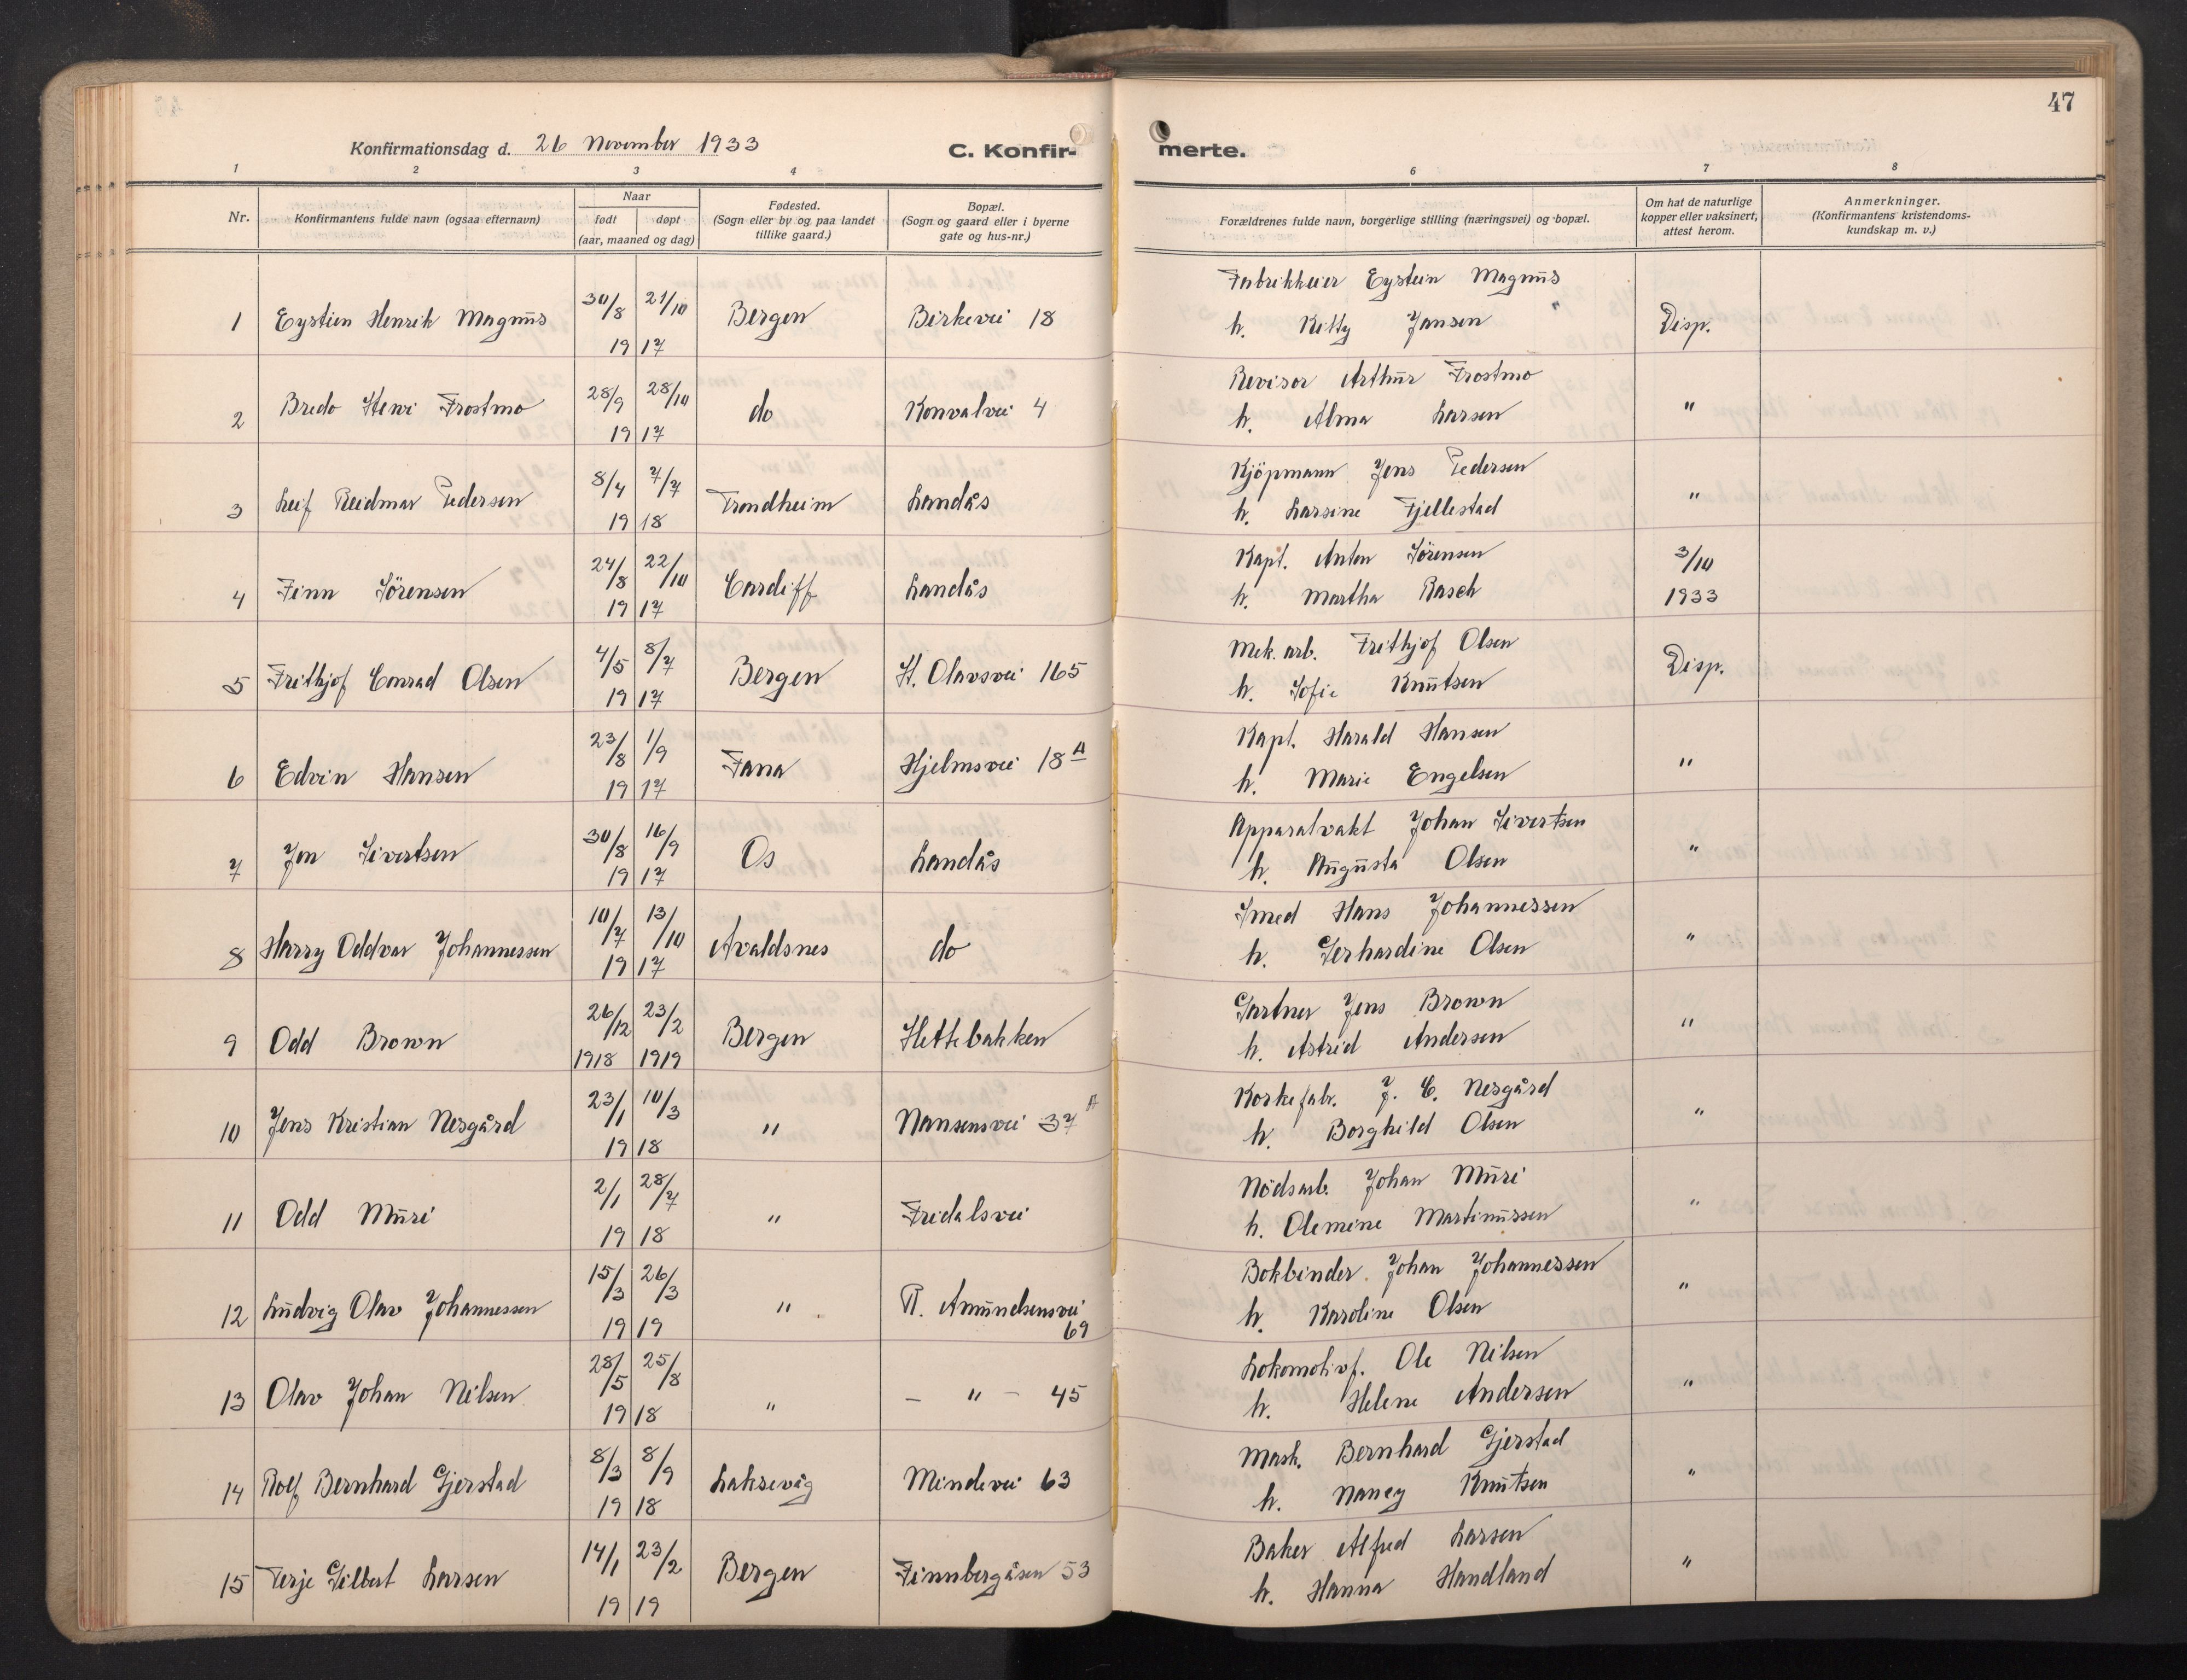 47
Konfirmationsdag d. 26 November 1933
C. Konfir-
merte.
1 2 3 4 6 7 8
Nr.
Konfirmantens fulde navn (ogsaa efternavn)
Naar
født døpt
(aar, maaned og dag)
Fødested.
(Sogn eller by og paa landet
tillike gaard.)
Bopæl.
(Sogn og gaard eller i byerne
gate og hus-nr.)
Forældrenes fulde navn, borgerlige stilling (næringsvei) og bopæl.
Om hat de naturlige
kopper eller vaksinert,
attest herom.
Anmerkninger.
(Konfirmantens kristendoms-
kundskap m. v.)
Fabrikkeier Eystein Magnus
1 Eystien Henrik Magnus 30/8 21/10 Bergen Birkevei 18 h. Kitty Jansen " Disp.
19 17
Revisor Arthur Frostmo
2 Bredo Henri Frostmo 28/9 28/10 do Konvalvei 4 h. Alma Larsen "
19 17
Kjöpmann Jens Pedersen
3 Leif Reidmar Pedersen 8/4 7/7 Trondheim Landås h. Larsine Fjellestad "
19 18
Kapt. Anton Sörensen 3/10
4 Finn Sörensen 24/8 22/10 Cardiff Landås h. Martha Rasch 1933
19 17
Mek. arb. Frithjof Olsen
5 Frithjof Conrad Olsen 4/5 8/7 Bergen St. Olavsvei 165 h. Sofie Knutsen Disp.
19 17
Kapt. Harald Hansen
6 Edvin Hansen 23/8 1/9 Fana Hjelmsvei 18A h. Marie Engelsen "
19 17
Apparatvakt Johan Sivertsen
7 Jon Sivertsen 30/8 16/9 Os Landås h. Augusta Olsen "
19 17
Smed Hans Johannessen
8 Harry Oddvar Johannessen 10/7 13/10 Avaldsnes do h. Gerhardine Olsen "
19 17
Gartner Jens Brown
9 Odd Brown 26/12 23/2 Bergen Slettebakken h. Astrid Andersen "
1918 1919
Korkefabr. J. C. Nesgård
10 Jens Kristian Nesgård 23/1 10/3 " Nansensvei 37A h. Borghild Olsen "
19 18
Nödsarb. Johan Muri
11 Odd Muri 2/1 28/7 " Fridalsvei h. Olemine Martinussen "
19 18
Bokbinder Johan Johannessen
12 Ludvig Olav Johannessen 15/3 26/3 " R. Amundsensvei 69 h. Karoline Olsen "
19 19
Lokomotivf. Ole Nilsen
13 Olav Johan Nilsen 28/5 25/8 " - " - 45 h. Helene Andersen "
19 18
Mask. Bernhard Gjerstad
14 Rolf Bernhard Gjerstad 8/3 8/9 Laksevåg Mindevei 63 h. Nancy Knutsen "
19 18
Baker Alfred Larsen
15 Terje Gilbert Larsen 14/1 23/2 Bergen Finnbergåsen 53 h. Hanna Handland "
19 19